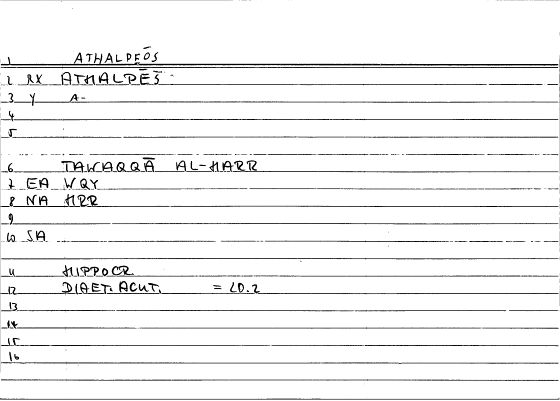 1 ATHALPEŌS
2 RX ATHALPĒS̄ -
3 Y A-
4
5
6 TAWAQQĀ AL-HARR
7 EA WQY
8 NA HRR
9
10 SA
11 HIPPOCR.
12 DIAET. ACUT. = 20.2
13
14
15
16